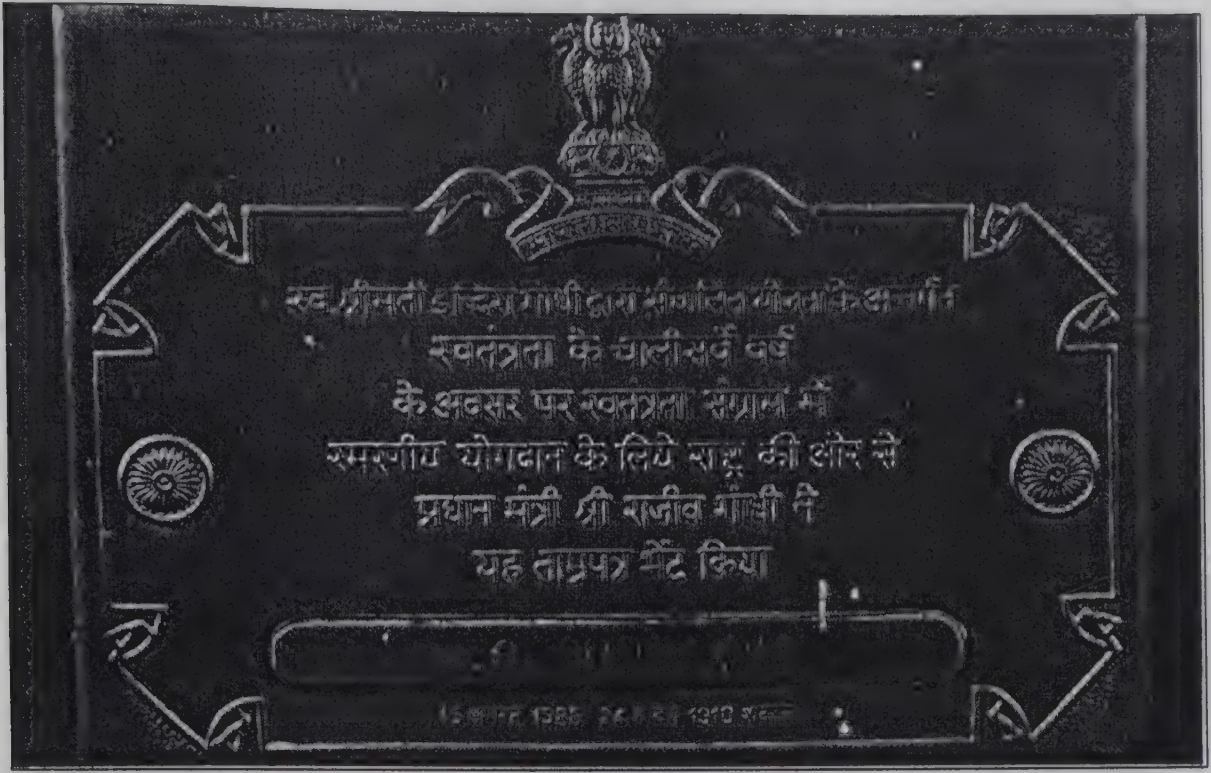 स्व. श्रीमती इन्दिरा गांधी द्वारा संचालित योजना के अन्तर्गत
स्वतंत्रता के चालीसवें वर्ष
के अवसर पर स्वतंत्रता संग्राम में
स्मरणीय योगदान के लिये राष्ट्र की ओर से
प्रधान मंत्री श्री राजीव गाँधी ने
यह ताम्रपत्र भेंट किया
15 1988 24 1910